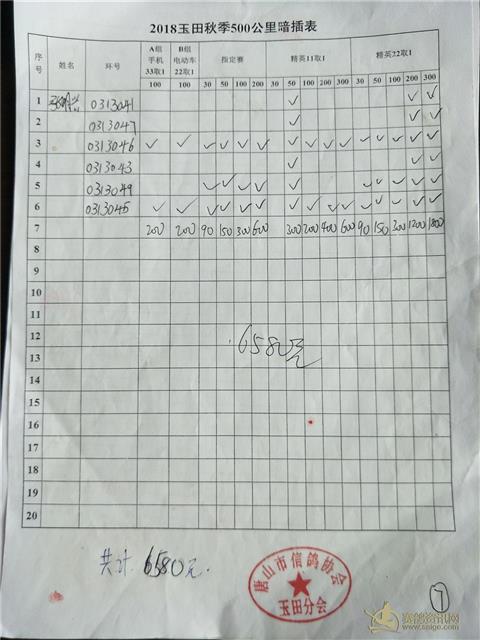 2018玉田秋季500公里暗插表
序号 姓名 环号 A组手机33取1 B组电动车22取1 指定赛 精英11取1 精英22取1
100 100 30 50 100 200 30 50 100 200 300 30 50 100 200 300
1 0313041 ✓ ✓ ✓
2 0313047 ✓ ✓ ✓
3 0313046 ✓ ✓ ✓ ✓ ✓ ✓ ✓ ✓ ✓ ✓ ✓ ✓ ✓ ✓ ✓
4 0313043 ✓ ✓ ✓
5 0313049 ✓ ✓ ✓ ✓ ✓ ✓ ✓ ✓ ✓ ✓
6 0313045 ✓ ✓ ✓ ✓ ✓ ✓ ✓ ✓ ✓ ✓ ✓ ✓ ✓ ✓ ✓
7 200 200 90 150 300 600 300 200 400 600 90 150 300 1200 1800
8
9
10
11
12
6580元
13
14
15
16
17
18
19
20
共计 6580元.
唐山市信鸽协会
玉田分会
7
赛鸽资讯网
www.saige.com